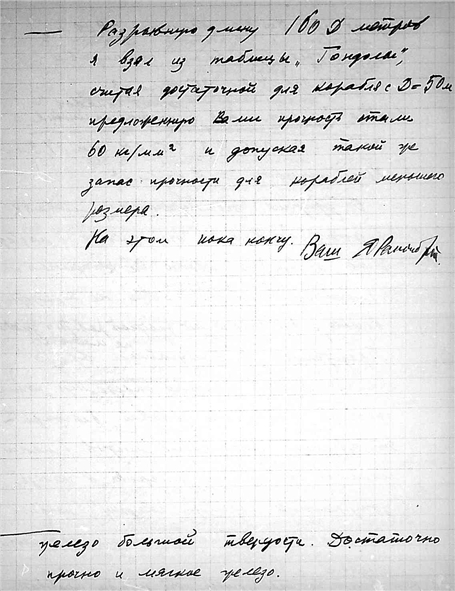 — Разрывную длину 160 D метров
я взял из таблицы „Гондолы",
считая достаточной для корабля с D=50м
предложенную Вами прочность стали
60 кг/мм² и допуская такой же
запас прочности для кораблей меньшего
размера.
На этом пока кончу. Ваш Я Рапопорт.
железо большой твердости. Достаточно
прочно и мягкое железо.